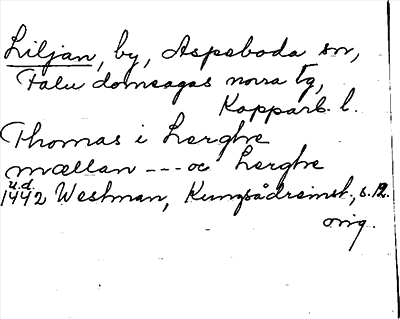 Liljan, by, Aspeboda sn,
Falu domsagas norra tg,
Kopparb. l.
Thomas i Lerghe
mællan --- oc Lerghe
u.d.
1442 Westman, Kungsådreinst., s. 12.
orig.